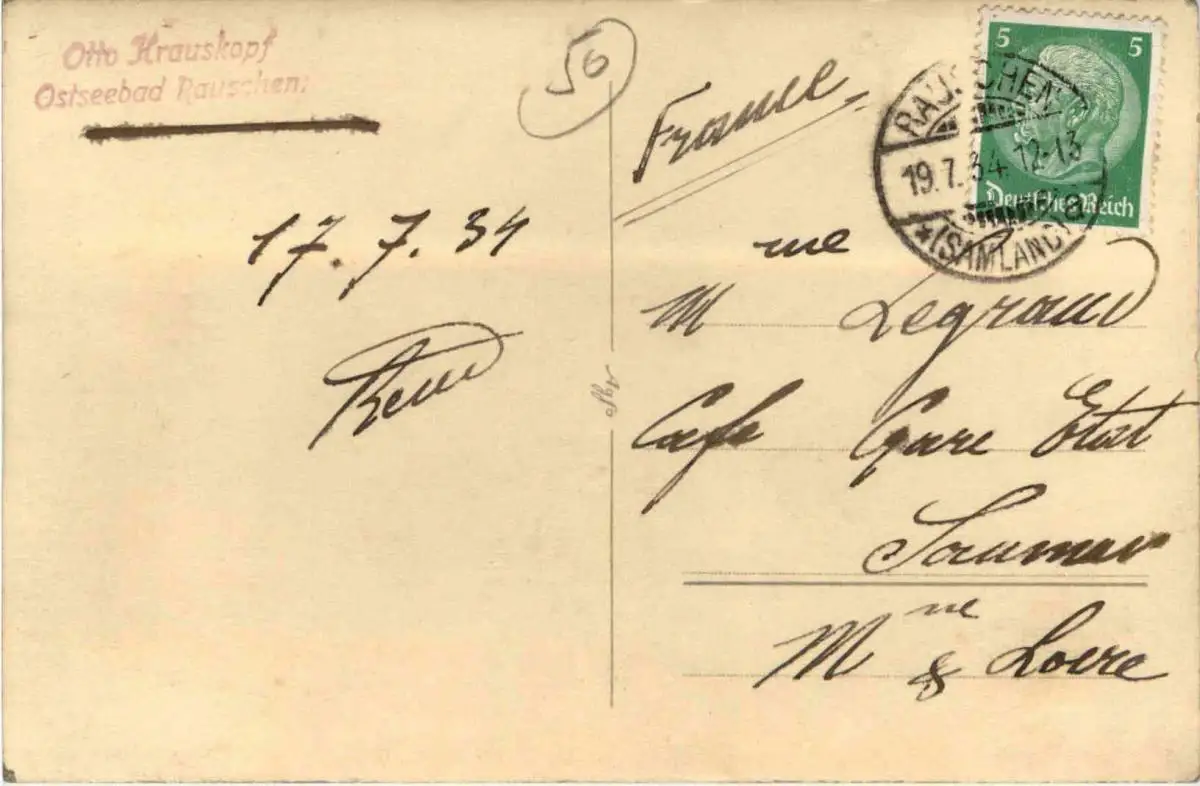 Otto Krauskopf
Ostseebad Rauschen
56
France
5 5
Deutsches Reich
RAUSCHEN
19.7.34. 12-13
* (SAMLAND)
17.7.34
Mme Legrand
Cafe Gare Etat
Saumur
Mne & Loire
Agfa